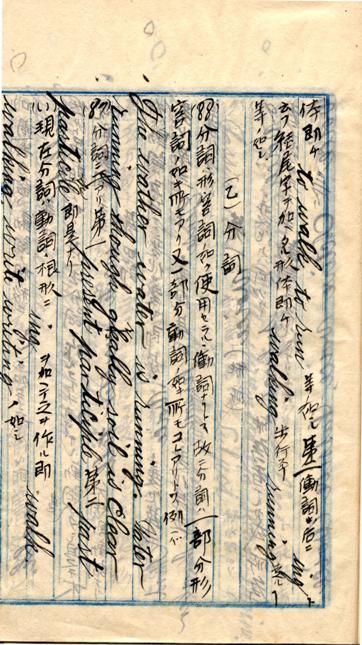 体即ケ to walk, to run 等ノ如シ 第二動詞ノ后ニ ing ト
云フ結尾字ヲ加ヘタル形体即ケ walking 歩行 running
等ノ如シ
(乙) 分詞
分詞ハ形容詞ノ如ク使用セラル 動詞ナリ 故ニ分詞ハ一部分形
容詞ノ如キ所モアリ又一部分動詞ノ如キ所モコレアリトス 例ヘバ
The water is running. Water
running through soil is clear
分詞 第一 present participle 第二 past
participle 即是ナリ
(い) 現在分詞ハ動詞ノ根形ニ ing ヲ加ヘテ之ヲ作ル即 walk
walking write writing ノ如シ